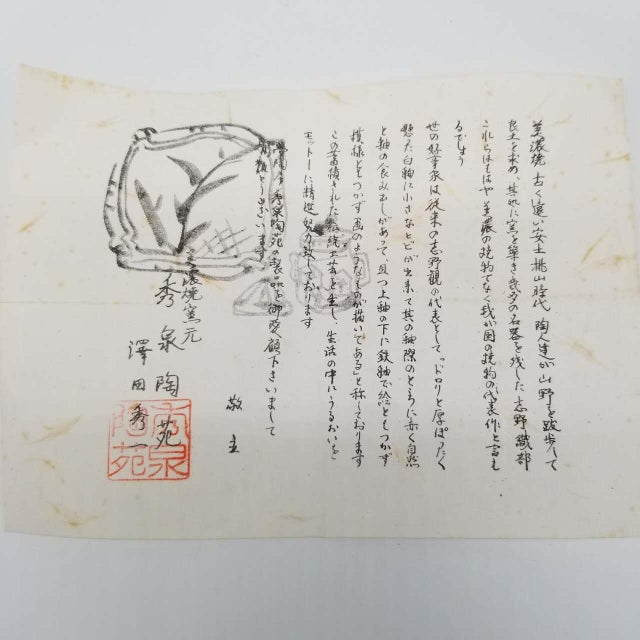 美濃焼 古く遠い安土桃山時代 陶人達が山野を跋歩して
良土を求め、其処に窯を築き幾多の名器を残した志野 織部
これらはもはや美濃の焼物でなく我が国の焼物の代表作と言え
るでしょう
世の好事家は従来の志野観の代表として、ドロリと厚ぼったく
懸た白釉に小さな が出来て其の釉際のところに赤く自然
と釉の食みだしがあって、且つ上釉の下に鉄釉で絵ともつかず
模様ともつかず画のようなものが描いてある」と称しております
この蓄積された伝統工芸を生し、生活の中にうるおいを
モットーに精進努力致しております
秀泉陶苑の製品を御愛顧下さいまして
有難うございます
敬 主
美濃焼窯元
秀泉陶苑
澤田秀一
秀泉
陶苑